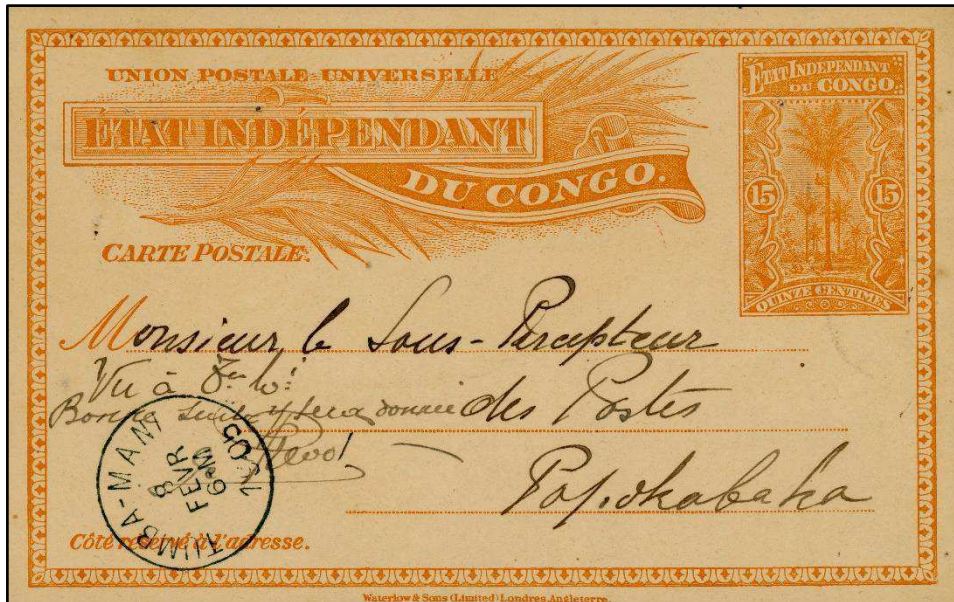 UNION POSTALE UNIVERSELLE
ÉTAT INDÉPENDANT
DU CONGO.
CARTE POSTALE.
ETAT INDEPENDANT
DU CONGO.
15 15
QUINZE CENTIMES
Monsieur le Sous-Percepteur
Vu à
Bonne suite y sera donnée
des Postes
Popokabaka
TUMBA-MANI
8
FEVR
6-M
1905
Côté réservé à l'adresse.
Waterlow & Sons (Limited) Londres, Angleterre.